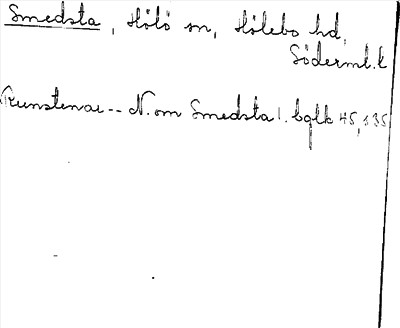 Smedsta, Hölö sn, Hölebo hd,
Söderml. l
Runstenar -- N. om Smedsta l. bglk 45, 135